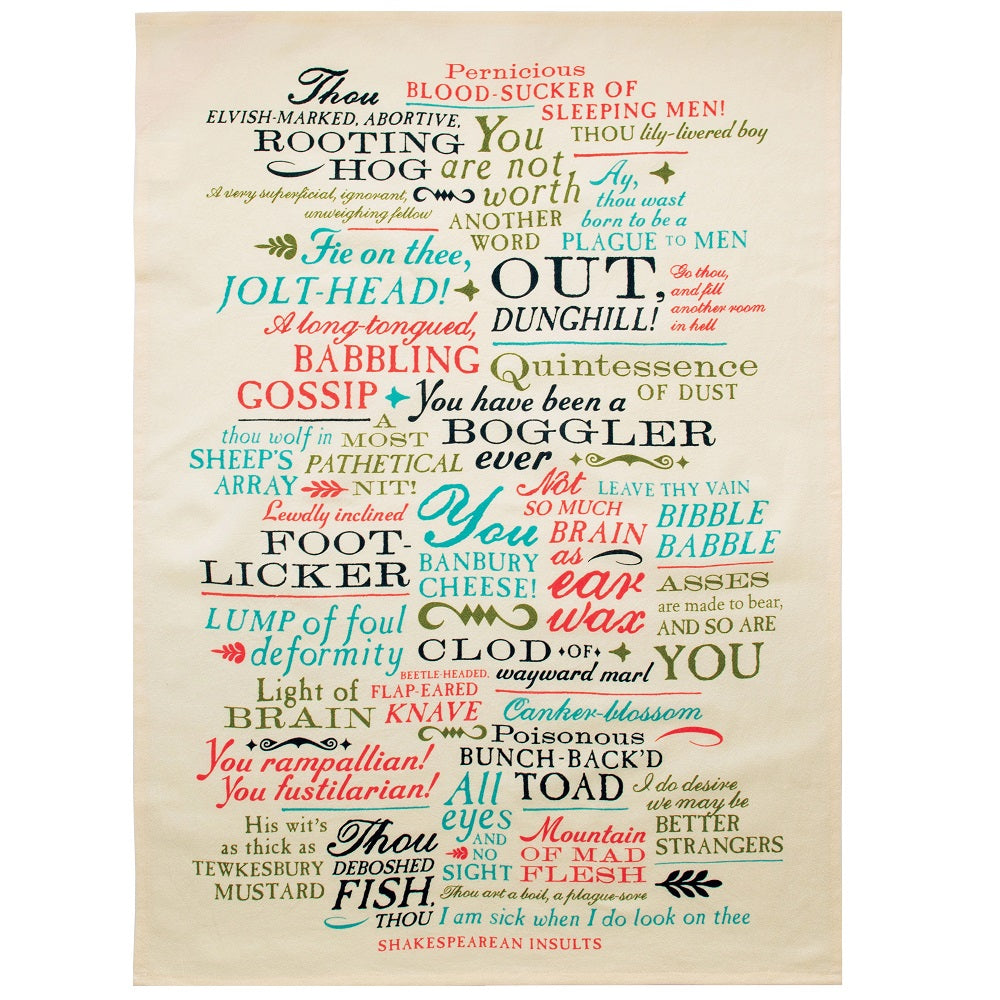 Pernicious
BLOOD-SUCKER OF
SLEEPING MEN!
Thou
ELVISH-MARKED, ABORTIVE,
ROOTING
HOG
You
are not
worth
ANOTHER
WORD
THOU lily-livered boy
A very superficial, ignorant,
unweighing fellow
Ay,
thou wast
born to be a
PLAGUE TO MEN
Fie on thee,
JOLT-HEAD!
OUT,
DUNGHILL!
Go thou,
and fill
another room
in hell
A long-tongued,
BABBLING
GOSSIP
Quintessence
OF DUST
You have been a
BOGGLER
ever
thou wolf in
SHEEP'S
ARRAY
A
MOST
PATHETICAL
NIT!
Lewdly inclined
FOOT-
LICKER
You
BANBURY
CHEESE!
Not
SO MUCH
BRAIN
as
ear
wax
LEAVE THY VAIN
BIBBLE
BABBLE
ASSES
are made to bear,
AND SO ARE
YOU
LUMP of foul
deformity
CLOD OF
wayward marl
BEETLE-HEADED,
FLAP-EARED
KNAVE
Light of
BRAIN
Canker-blossom
Poisonous
BUNCH-BACK'D
TOAD
You rampallian!
You fustilarian!
All
eyes
AND
NO
SIGHT
I do desire
we may be
BETTER
STRANGERS
His wit's
as thick as
TEWKESBURY
MUSTARD
Thou
DEBOSHED
FISH,
THOU
Mountain
OF MAD
FLESH
Thou art a boil, a plague-sore
I am sick when I do look on thee
SHAKESPEAREAN INSULTS